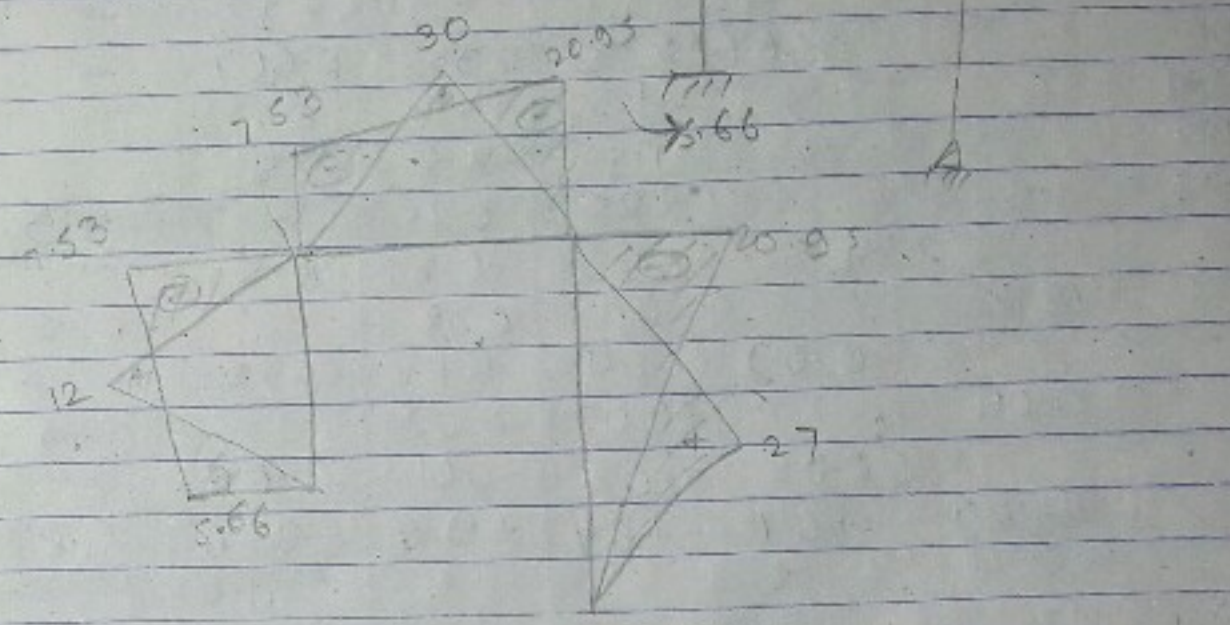 30
20.95
7.53
5.66
.53
20.95
12
+
27
5.66